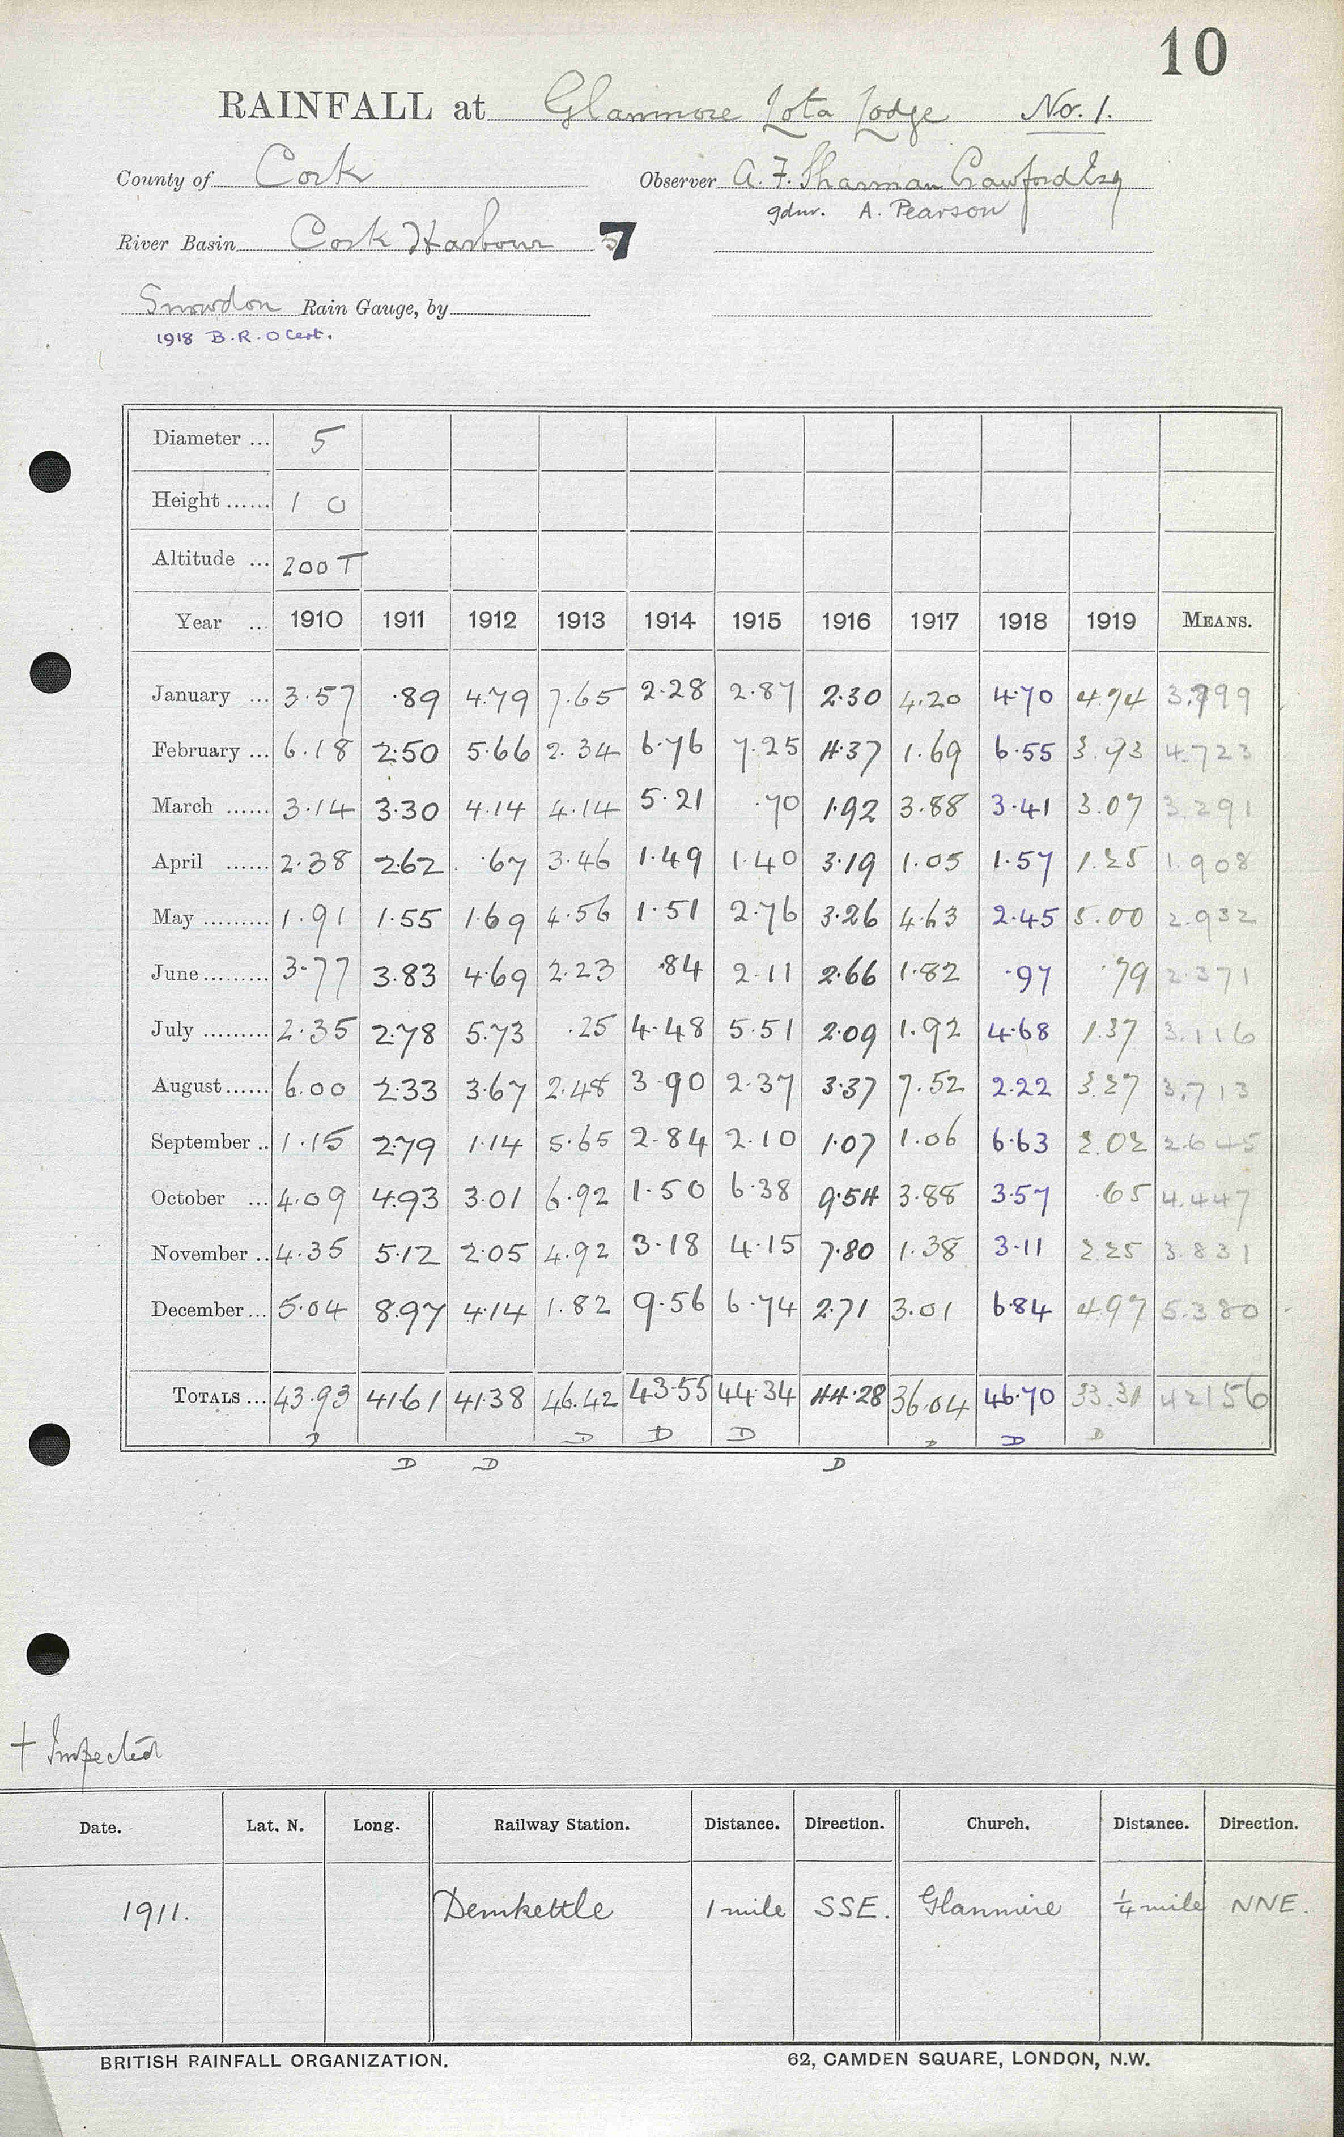 10
RAINFALL at Glanmore Lota Lodge No. 1.
County of Cork Observer A. F. Sharman Crawford Esq
gdnr. A. Pearson
River Basin Cork Harbour 7
Snowdon Rain Gauge, by
1918 B.R.O Cert.
Diameter ... 5
Height ...... 1 0
Altitude ... 200 T
Year ... 1910 1911 1912 1913 1914 1915 1916 1917 1918 1919 MEANS.
January ... 3.57 .89 4.79 7.65 2.28 2.87 2.30 4.20 4.70 4.74 3.799
February ... 6.18 2.50 5.66 2.34 6.76 7.25 4.37 1.69 6.55 3.93 4.723
March ...... 3.14 3.30 4.14 4.14 5.21 .70 1.92 3.88 3.41 3.07 3.291
April ...... 2.38 2.62 .67 3.46 1.49 1.40 3.19 1.05 1.57 1.25 1.908
May ......... 1.91 1.55 1.69 4.56 1.51 2.76 3.26 4.63 2.45 5.00 2.932
June ......... 3.77 3.83 4.69 2.23 .84 2.11 2.66 1.82 .97 .79 2.371
July ......... 2.35 2.78 5.73 .25 4.48 5.51 2.09 1.92 4.68 1.37 3.116
August ...... 6.00 2.33 3.67 2.48 3.90 2.37 3.37 7.52 2.22 3.27 3.713
September .. 1.15 2.79 1.14 5.65 2.84 2.10 1.07 1.06 6.63 2.02 2.645
October ... 4.09 4.93 3.01 6.92 1.50 6.38 9.54 3.88 3.57 .65 4.447
November .. 4.35 5.12 2.05 4.92 3.18 4.15 7.80 1.38 3.11 2.25 3.831
December ... 5.04 8.97 4.14 1.82 9.56 6.74 2.71 3.01 6.84 4.97 5.380
TOTALS ... 43.93 41.61 41.38 46.42 43.55 44.34 44.28 36.04 46.70 33.31 42156
D D D D D D D
D D D
+ Inspected
Date. Lat. N. Long. Railway Station. Distance. Direction. Church. Distance. Direction.
1911. Dunkettle 1 mile SSE. Glanmire ¼ mile NNE.
BRITISH RAINFALL ORGANIZATION. 62, CAMDEN SQUARE, LONDON, N.W.